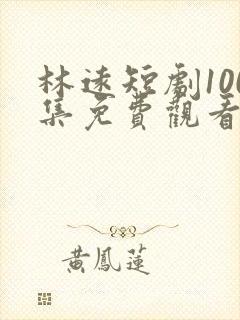 林遠短劇100
集免費觀看
黃鳳蓮